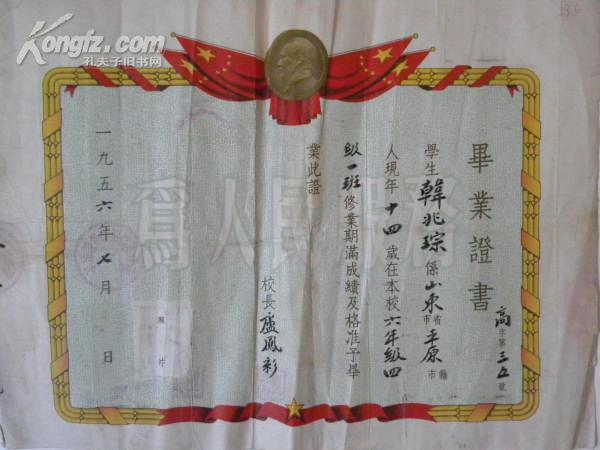 Kongfz.com
孔夫子旧书网
336
畢業證書
高字第三五號
學生韓兆琮係山東省市平原縣市
人現年十四歲在本校六年級四
級一班修業期滿成績及格准予畢
業此證
校長盧鳳彩
照片
一九五六年七月 日
爲人民服務